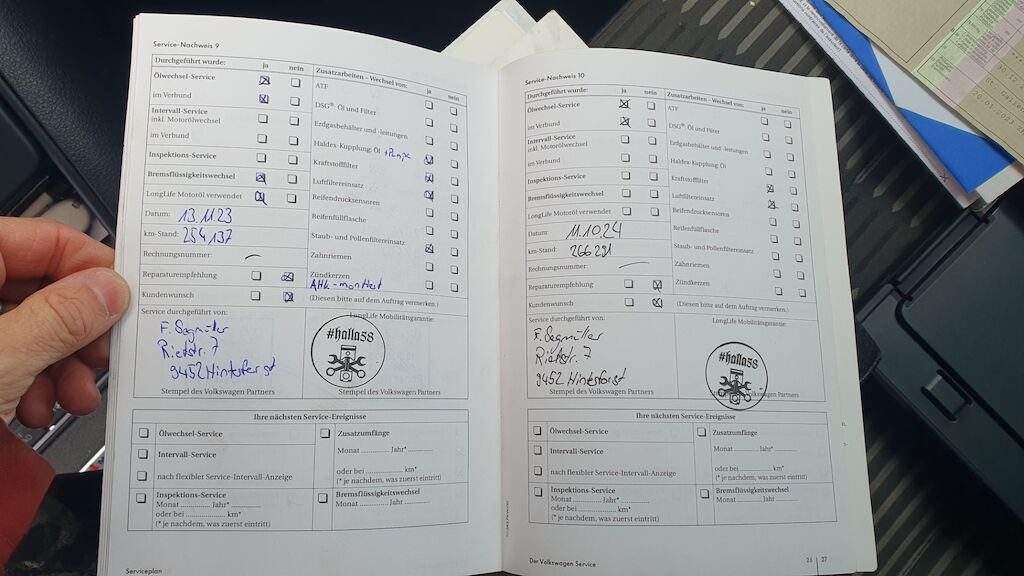 Service-Nachweis 9
Durchgeführt wurde: ja nein
Ölwechsel-Service
im Verbund
Intervall-Service
inkl. Motorölwechsel
im Verbund
Inspektions-Service
Bremsflüssigkeitswechsel
LongLife Motoröl verwendet
Datum: 13.11.23
km-Stand: 254 137
Rechnungsnummer:
Reparaturempfehlung
Kundenwunsch
Zusatzarbeiten - Wechsel von: ja nein
ATF
DSG®: Öl und Filter
Erdgasbehälter und -leitungen
Haldex-Kupplung: Öl + Pumpe
Kraftstofffilter
Luftfiltereinsatz
Reifendrucksensoren
Reifenfüllflasche
Staub- und Pollenfiltereinsatz
Zahnriemen
Zündkerzen
AHK-montiert
(Diesen bitte auf dem Auftrag vermerken.)
Service durchgeführt von:
F. Segmüller
Rietstr. 7
9452 Hinterforst
Stempel des Volkswagen Partners
LongLife Mobilitätsgarantie:
#halla58
Stempel des Volkswagen Partners
Ihre nächsten Service-Ereignisse
Ölwechsel-Service
Intervall-Service
nach flexibler Service-Intervall-Anzeige
Inspektions-Service
Monat ............ Jahr* ............
oder bei ............ km*
(* je nachdem, was zuerst eintritt)
Zusatzumfänge
Monat ............ Jahr* ............
oder bei ............ km*
(* je nachdem, was zuerst eintritt)
Bremsflüssigkeitswechsel
Monat ............ Jahr ............
Serviceplan
Service-Nachweis 10
Durchgeführt wurde: ja nein
Ölwechsel-Service
im Verbund
Intervall-Service
inkl. Motorölwechsel
im Verbund
Inspektions-Service
Bremsflüssigkeitswechsel
LongLife Motoröl verwendet
Datum: 11.10.24
km-Stand: 266 291
Rechnungsnummer:
Reparaturempfehlung
Kundenwunsch
Zusatzarbeiten - Wechsel von: ja nein
ATF
DSG®: Öl und Filter
Erdgasbehälter und -leitungen
Haldex-Kupplung: Öl
Kraftstofffilter
Luftfiltereinsatz
Reifendrucksensoren
Reifenfüllflasche
Staub- und Pollenfiltereinsatz
Zahnriemen
Zündkerzen
(Diesen bitte auf dem Auftrag vermerken.)
Service durchgeführt von:
F. Segmüller
Rietstr. 7
9452 Hinterforst
Stempel des Volkswagen Partners
LongLife Mobilitätsgarantie:
#halla58
Stempel des Volkswagen Partners
Ihre nächsten Service-Ereignisse
Ölwechsel-Service
Intervall-Service
nach flexibler Service-Intervall-Anzeige
Inspektions-Service
Monat ............ Jahr* ............
oder bei ............ km*
(* je nachdem, was zuerst eintritt)
Zusatzumfänge
Monat ............ Jahr* ............
oder bei ............ km*
(* je nachdem, was zuerst eintritt)
Bremsflüssigkeitswechsel
Monat ............ Jahr ............
Der Volkswagen Service
26 | 27